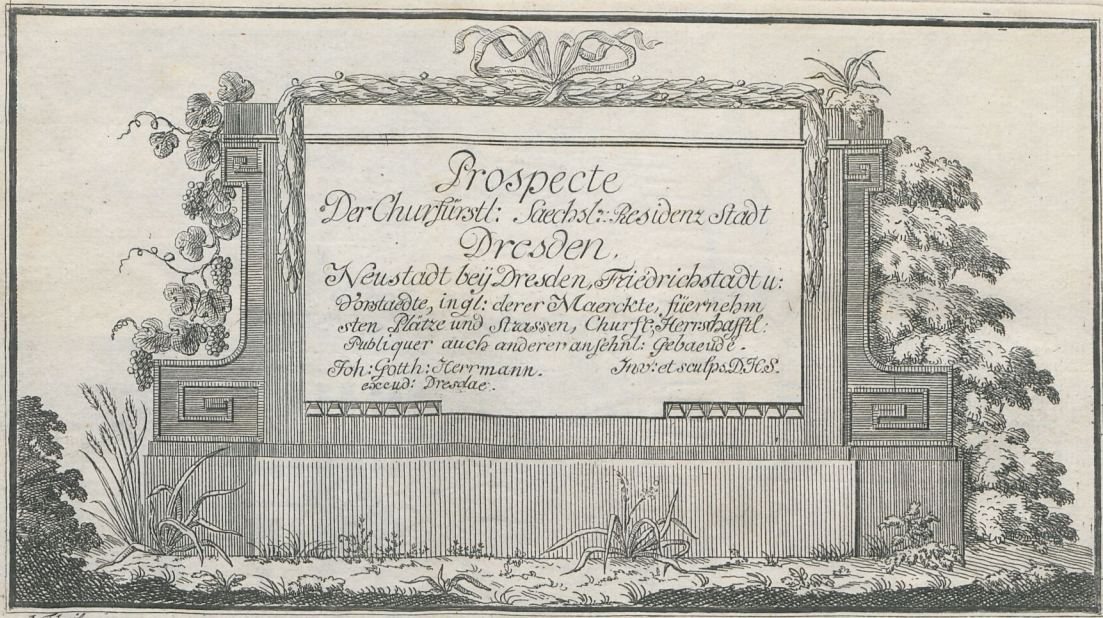 Prospecte
Der Churfürstl: Saechsl: Residenz Stadt
Dresden,
Neustadt beÿ Dresden, Friedrichstadt u:
Vorstaedte, ingl: derer Maerckte, füernehm
sten Plätze und Strassen, Churfl: Herrschafftl:
Publiquer auch anderer ansehnl: Gebaeude.
Joh: Gotth: Herrmann. Inv: et sculps. D.H.S.
excud: Dresdae.